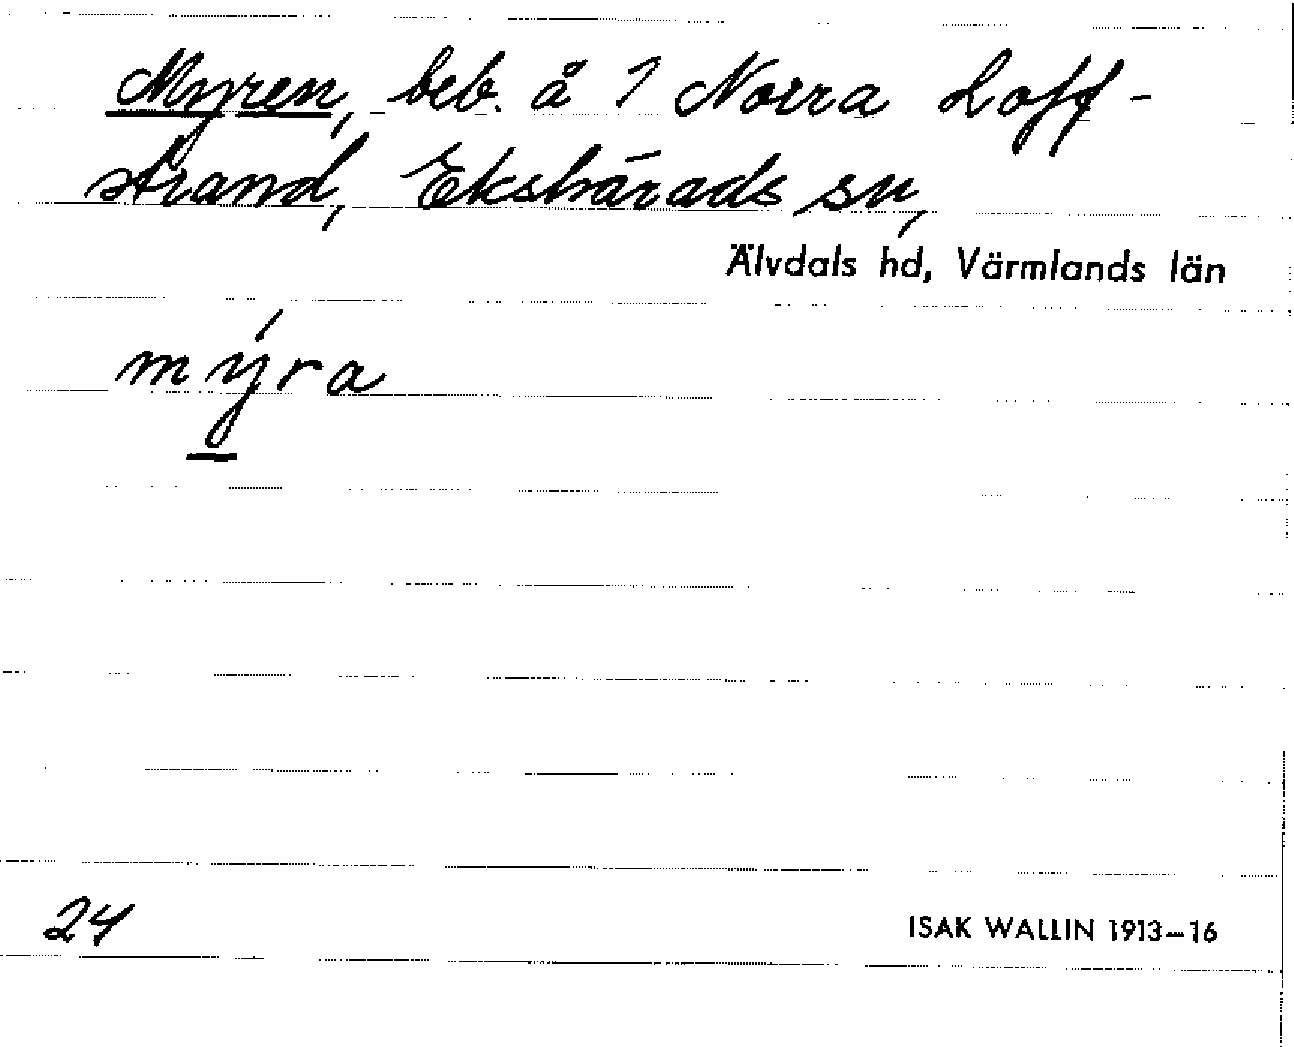 Myren, beb. å 1 Norra Loff-
strand, Ekshärads sn,
Älvdals hd, Värmlands län
mýra
24
ISAK WALLIN 1913–16